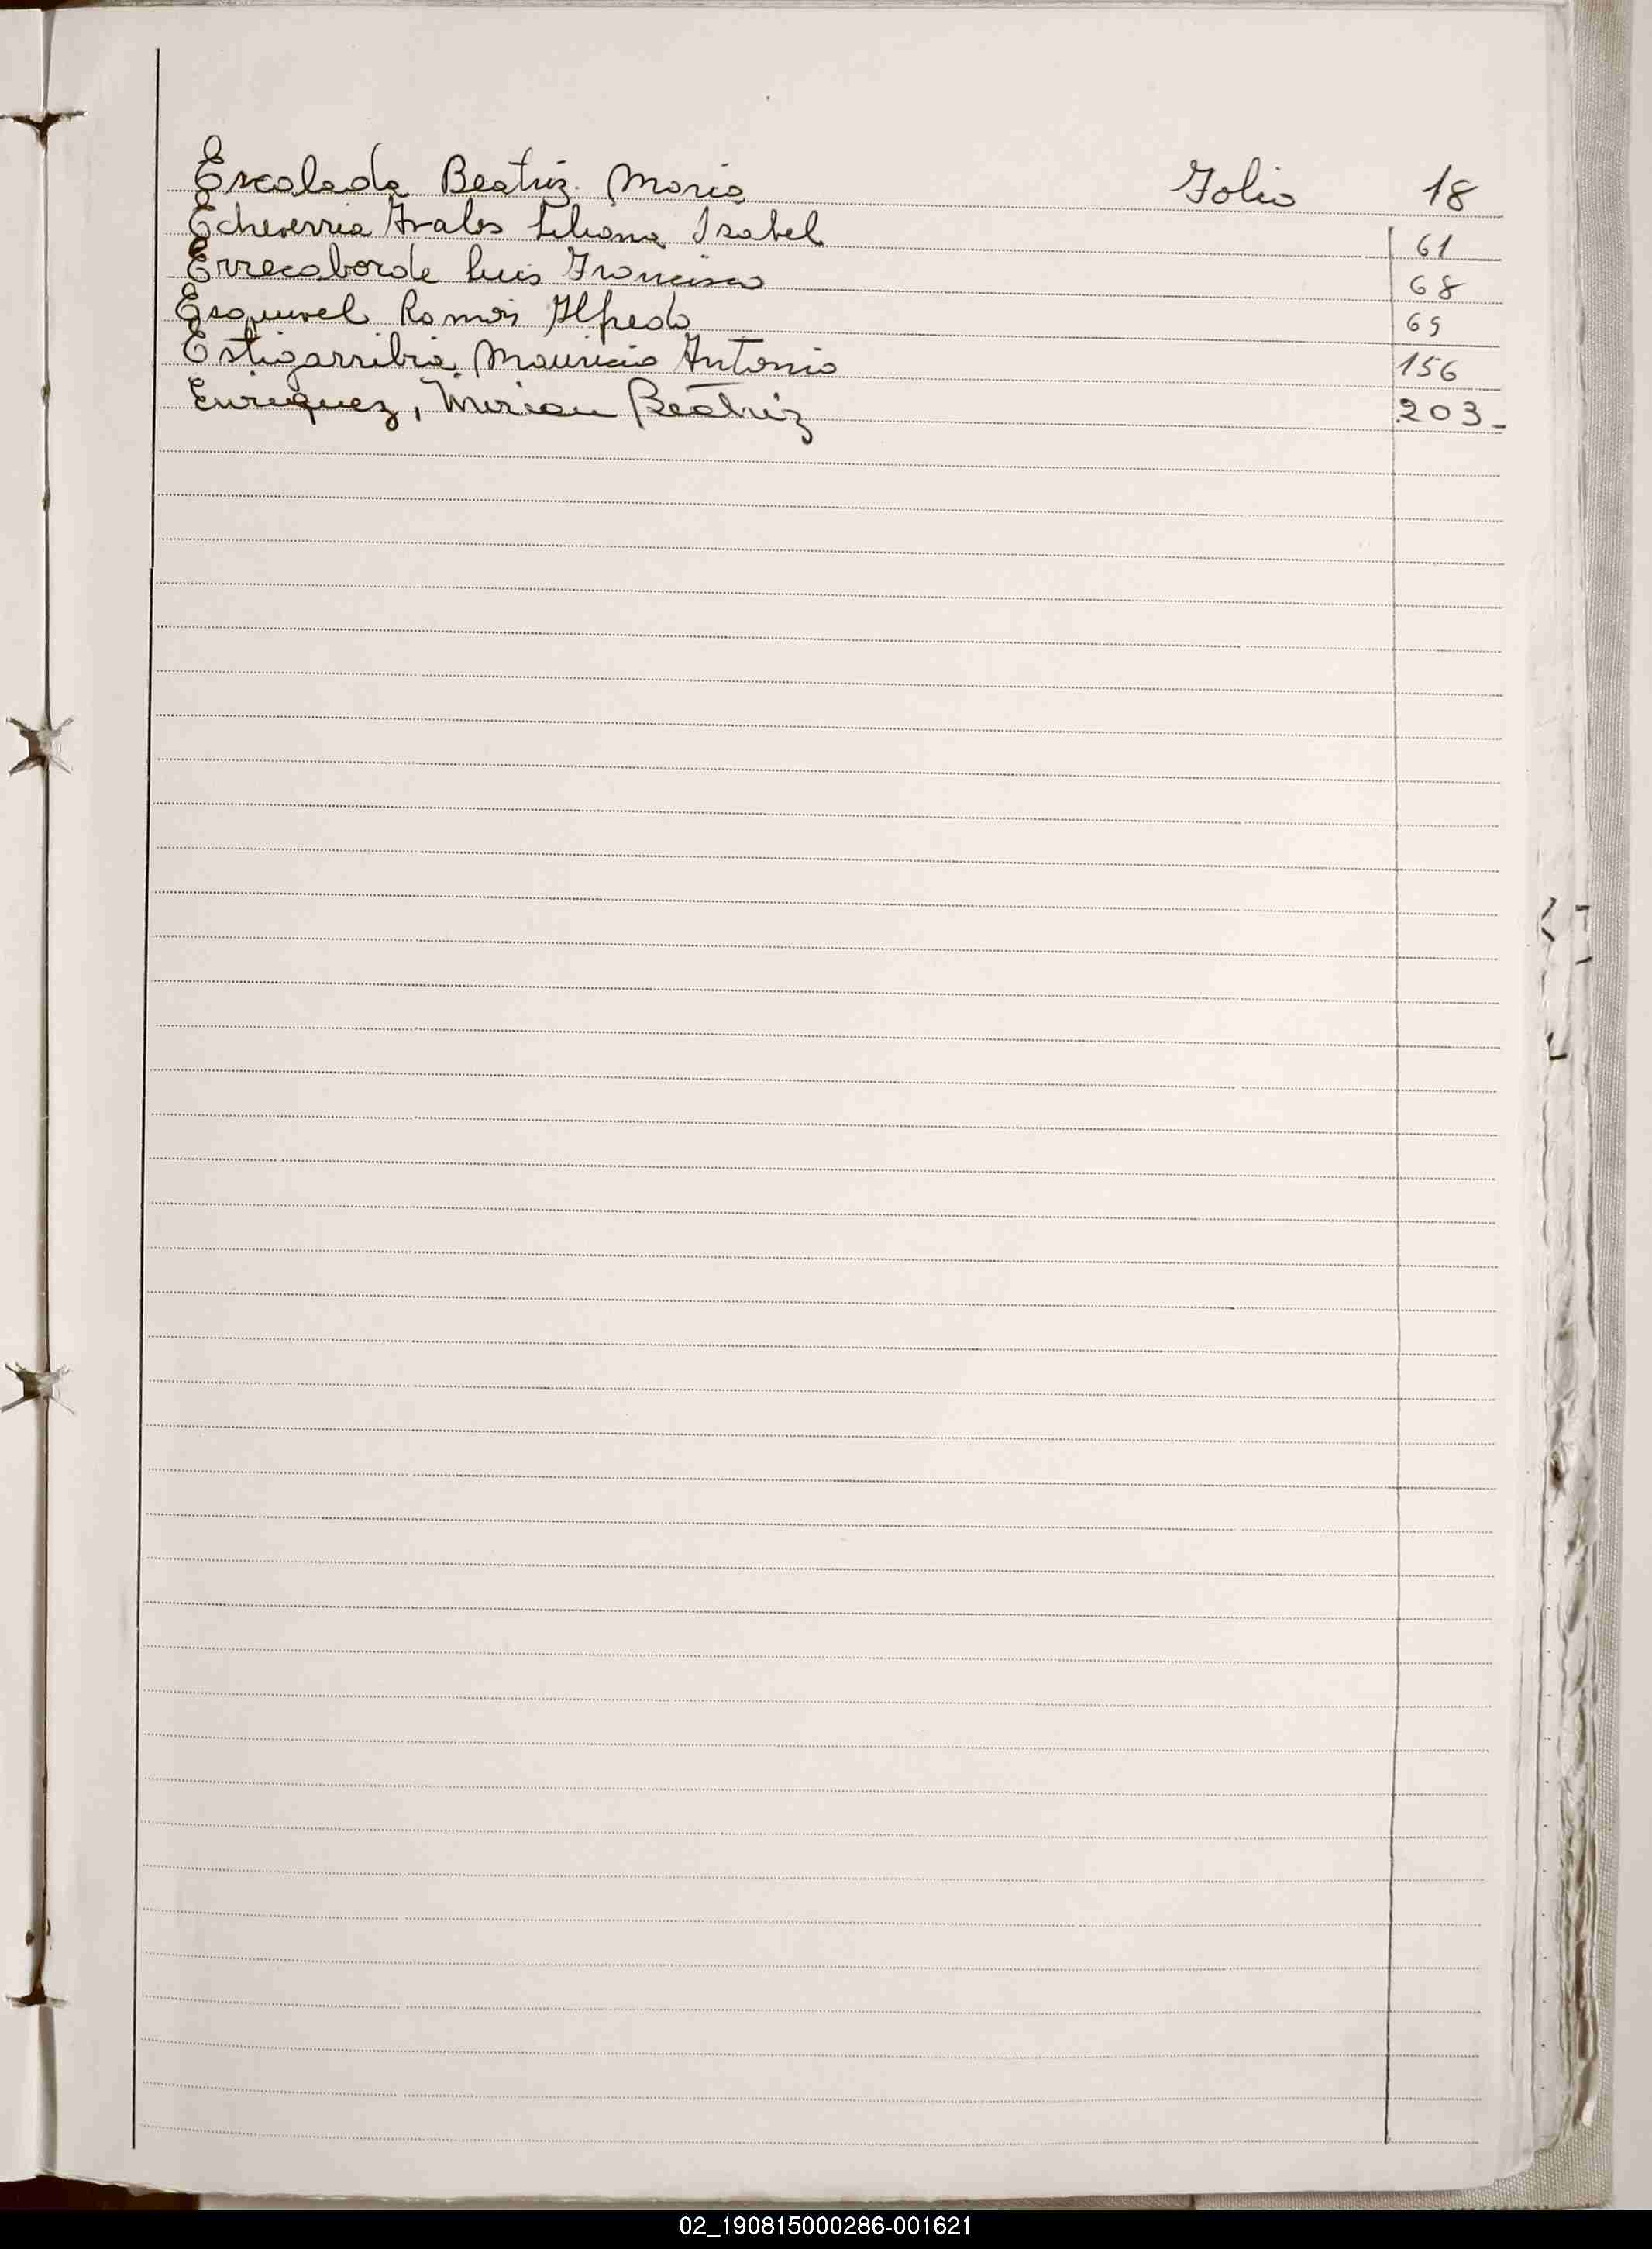 Escalada Beatriz Maria Folio 18
Echeverria Avalos Liliana Isabel 61
Errecaborde Luis Francisco 68
Esquivel Ramón Alfredo 69
Estigarribia Mauricio Antonio 156
Enriquez, Mirian Beatriz 203-
02_190815000286-001621